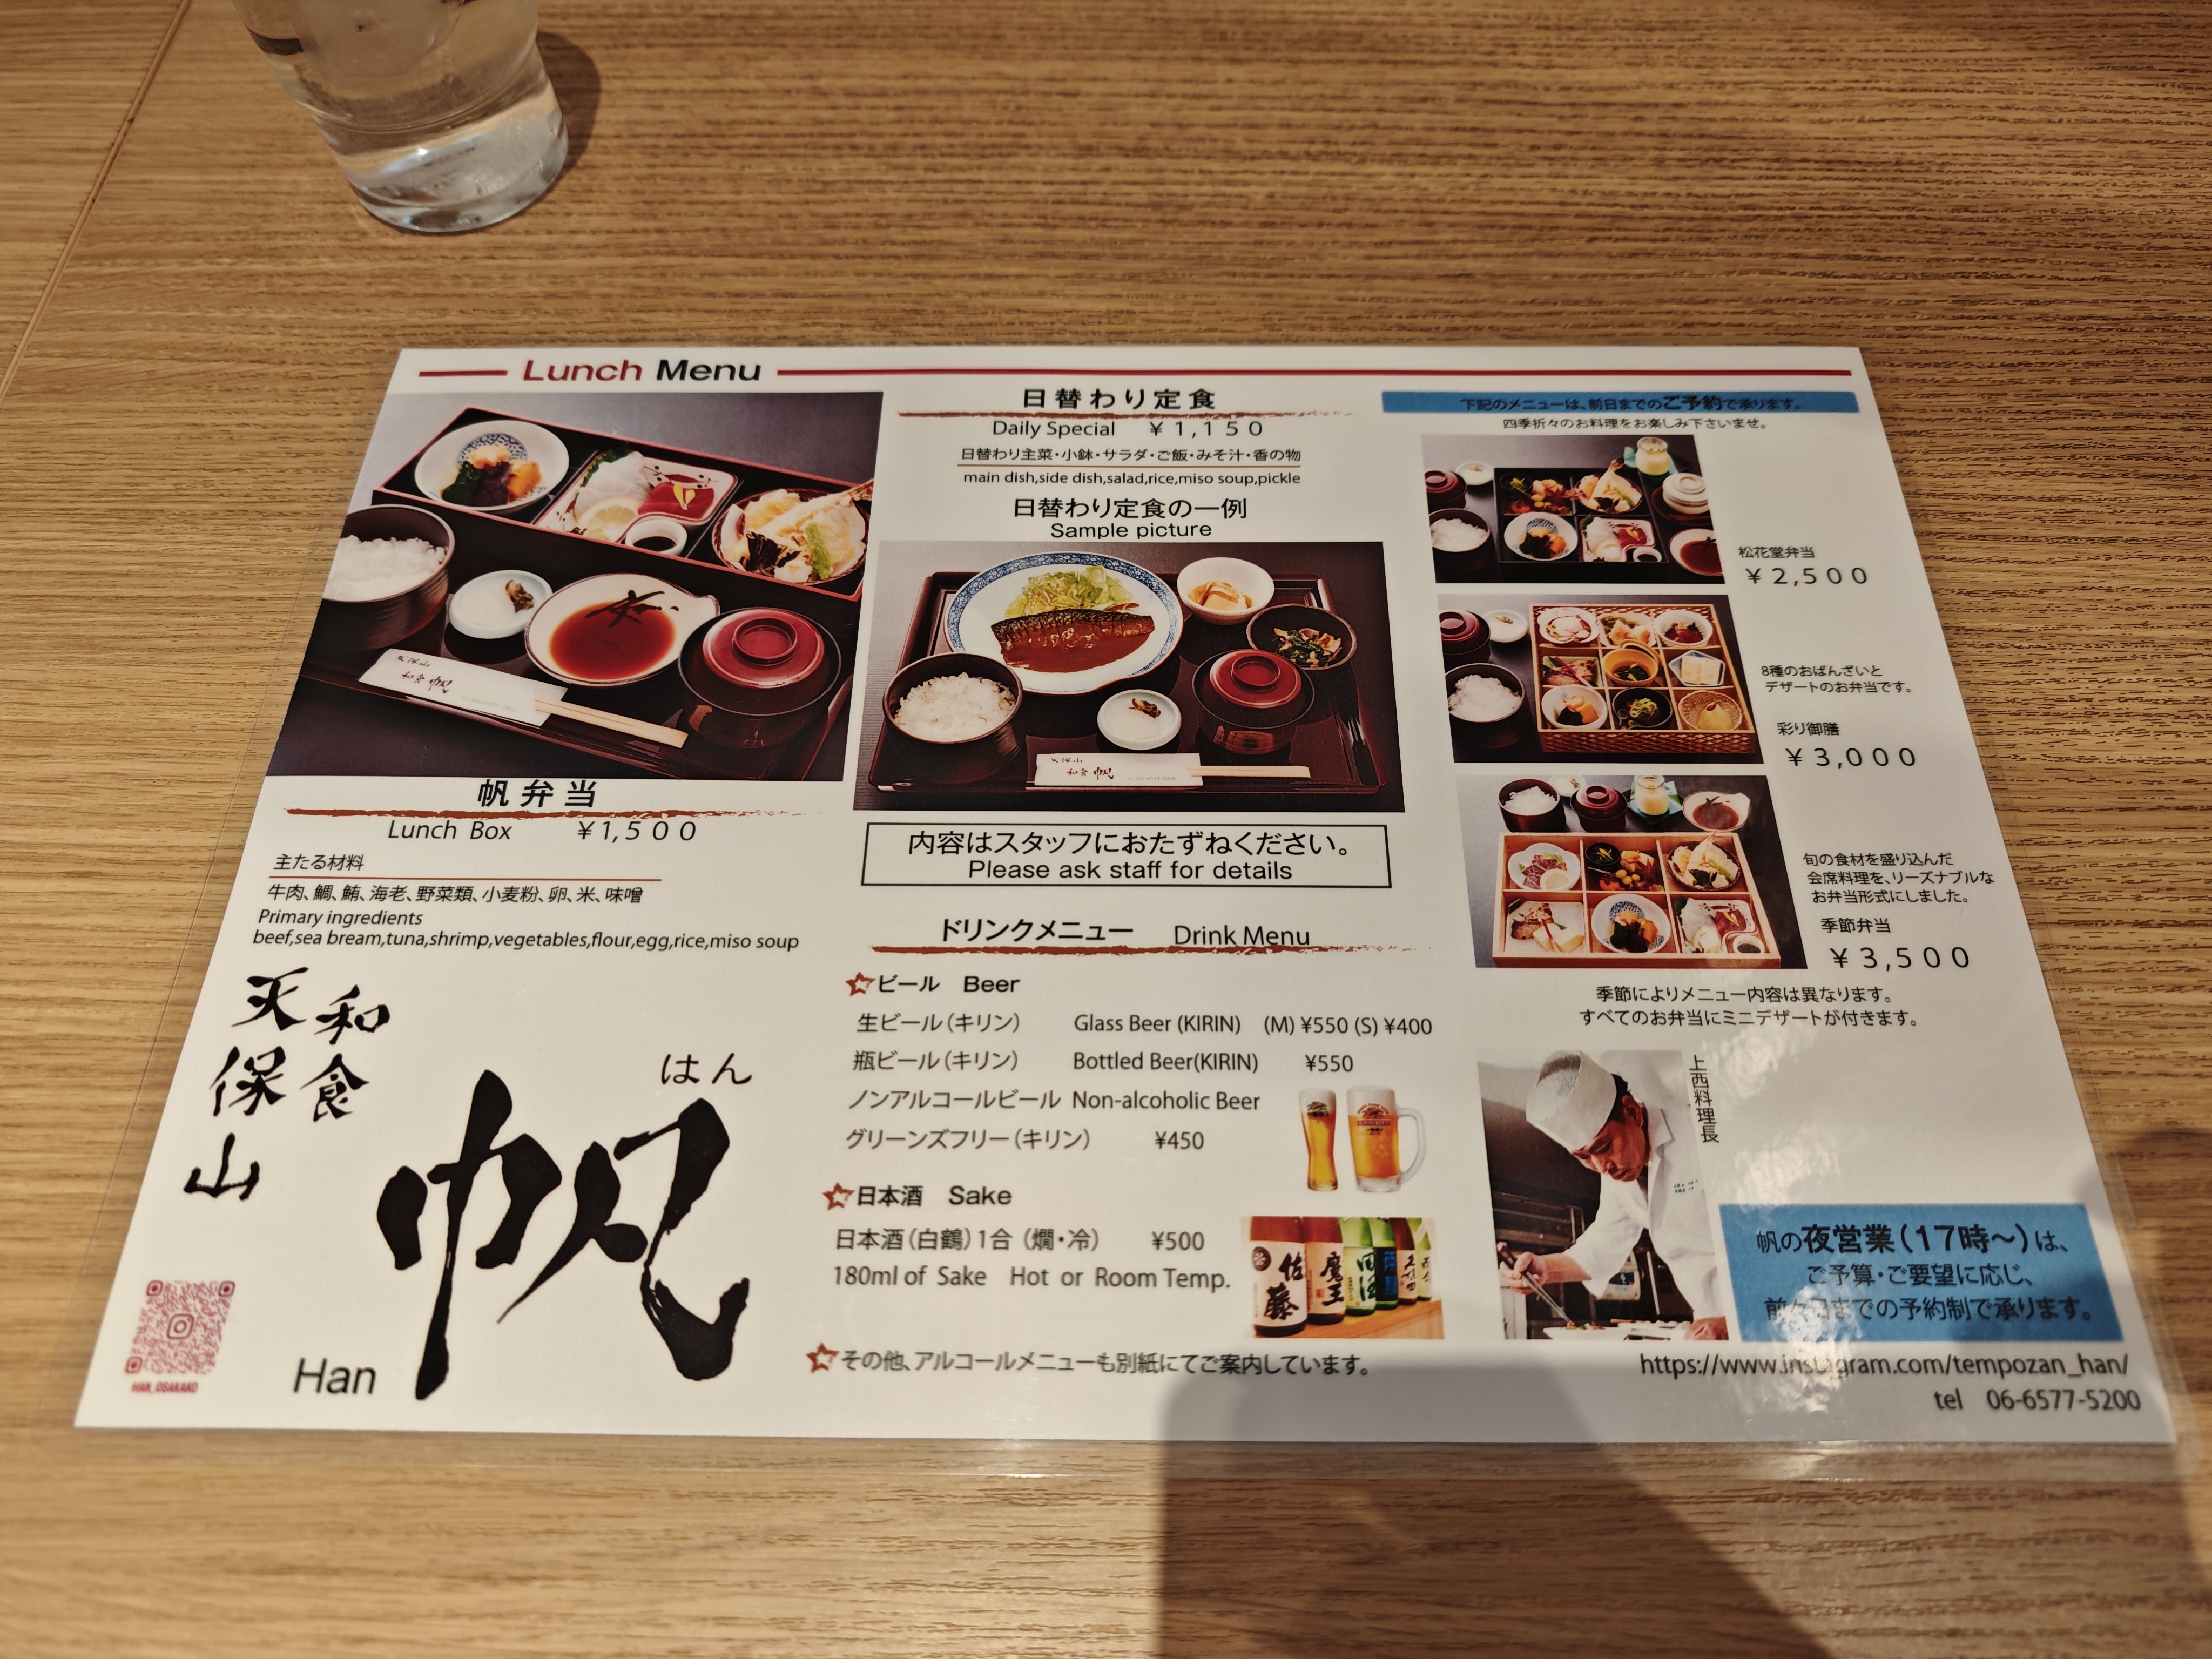 Lunch Menu
帆弁当
Lunch Box ¥1,500
主たる材料
牛肉、鯛、鮪、海老、野菜類、小麦粉、卵、米、味噌
Primary ingredients
beef,sea bream,tuna,shrimp,vegetables,flour,egg,rice,miso soup
和食
天保山
はん
帆
Han
HAN_OSAKAKO
日替わり定食
Daily Special ¥1,150
日替わり主菜・小鉢・サラダ・ご飯・みそ汁・香の物
main dish,side dish,salad,rice,miso soup,pickle
日替わり定食の一例
Sample picture
内容はスタッフにおたずねください。
Please ask staff for details
ドリンクメニュー Drink Menu
ビール Beer
生ビール(キリン) Glass Beer (KIRIN) (M) ¥550 (S) ¥400
瓶ビール(キリン) Bottled Beer(KIRIN) ¥550
ノンアルコールビール Non-alcoholic Beer
グリーンズフリー(キリン) ¥450
日本酒 Sake
日本酒(白鶴)1合(燗・冷) ¥500
180ml of Sake Hot or Room Temp.
佐藤
魔王
その他、アルコールメニューも別紙にてご案内しています。
下記のメニューは、前日までのご予約で承ります。
四季折々のお料理をお楽しみ下さいませ。
松花堂弁当
¥2,500
8種のおばんざいと
デザートのお弁当です。
彩り御膳
¥3,000
旬の食材を盛り込んだ
会席料理を、リーズナブルな
お弁当形式にしました。
季節弁当
¥3,500
季節によりメニュー内容は異なります。
すべてのお弁当にミニデザートが付きます。
上西料理長
帆の夜営業(17時〜)は、
ご予算・ご要望に応じ、
前々日までの予約制で承ります。
https://www.instagram.com/tempozan_han/
tel 06-6577-5200